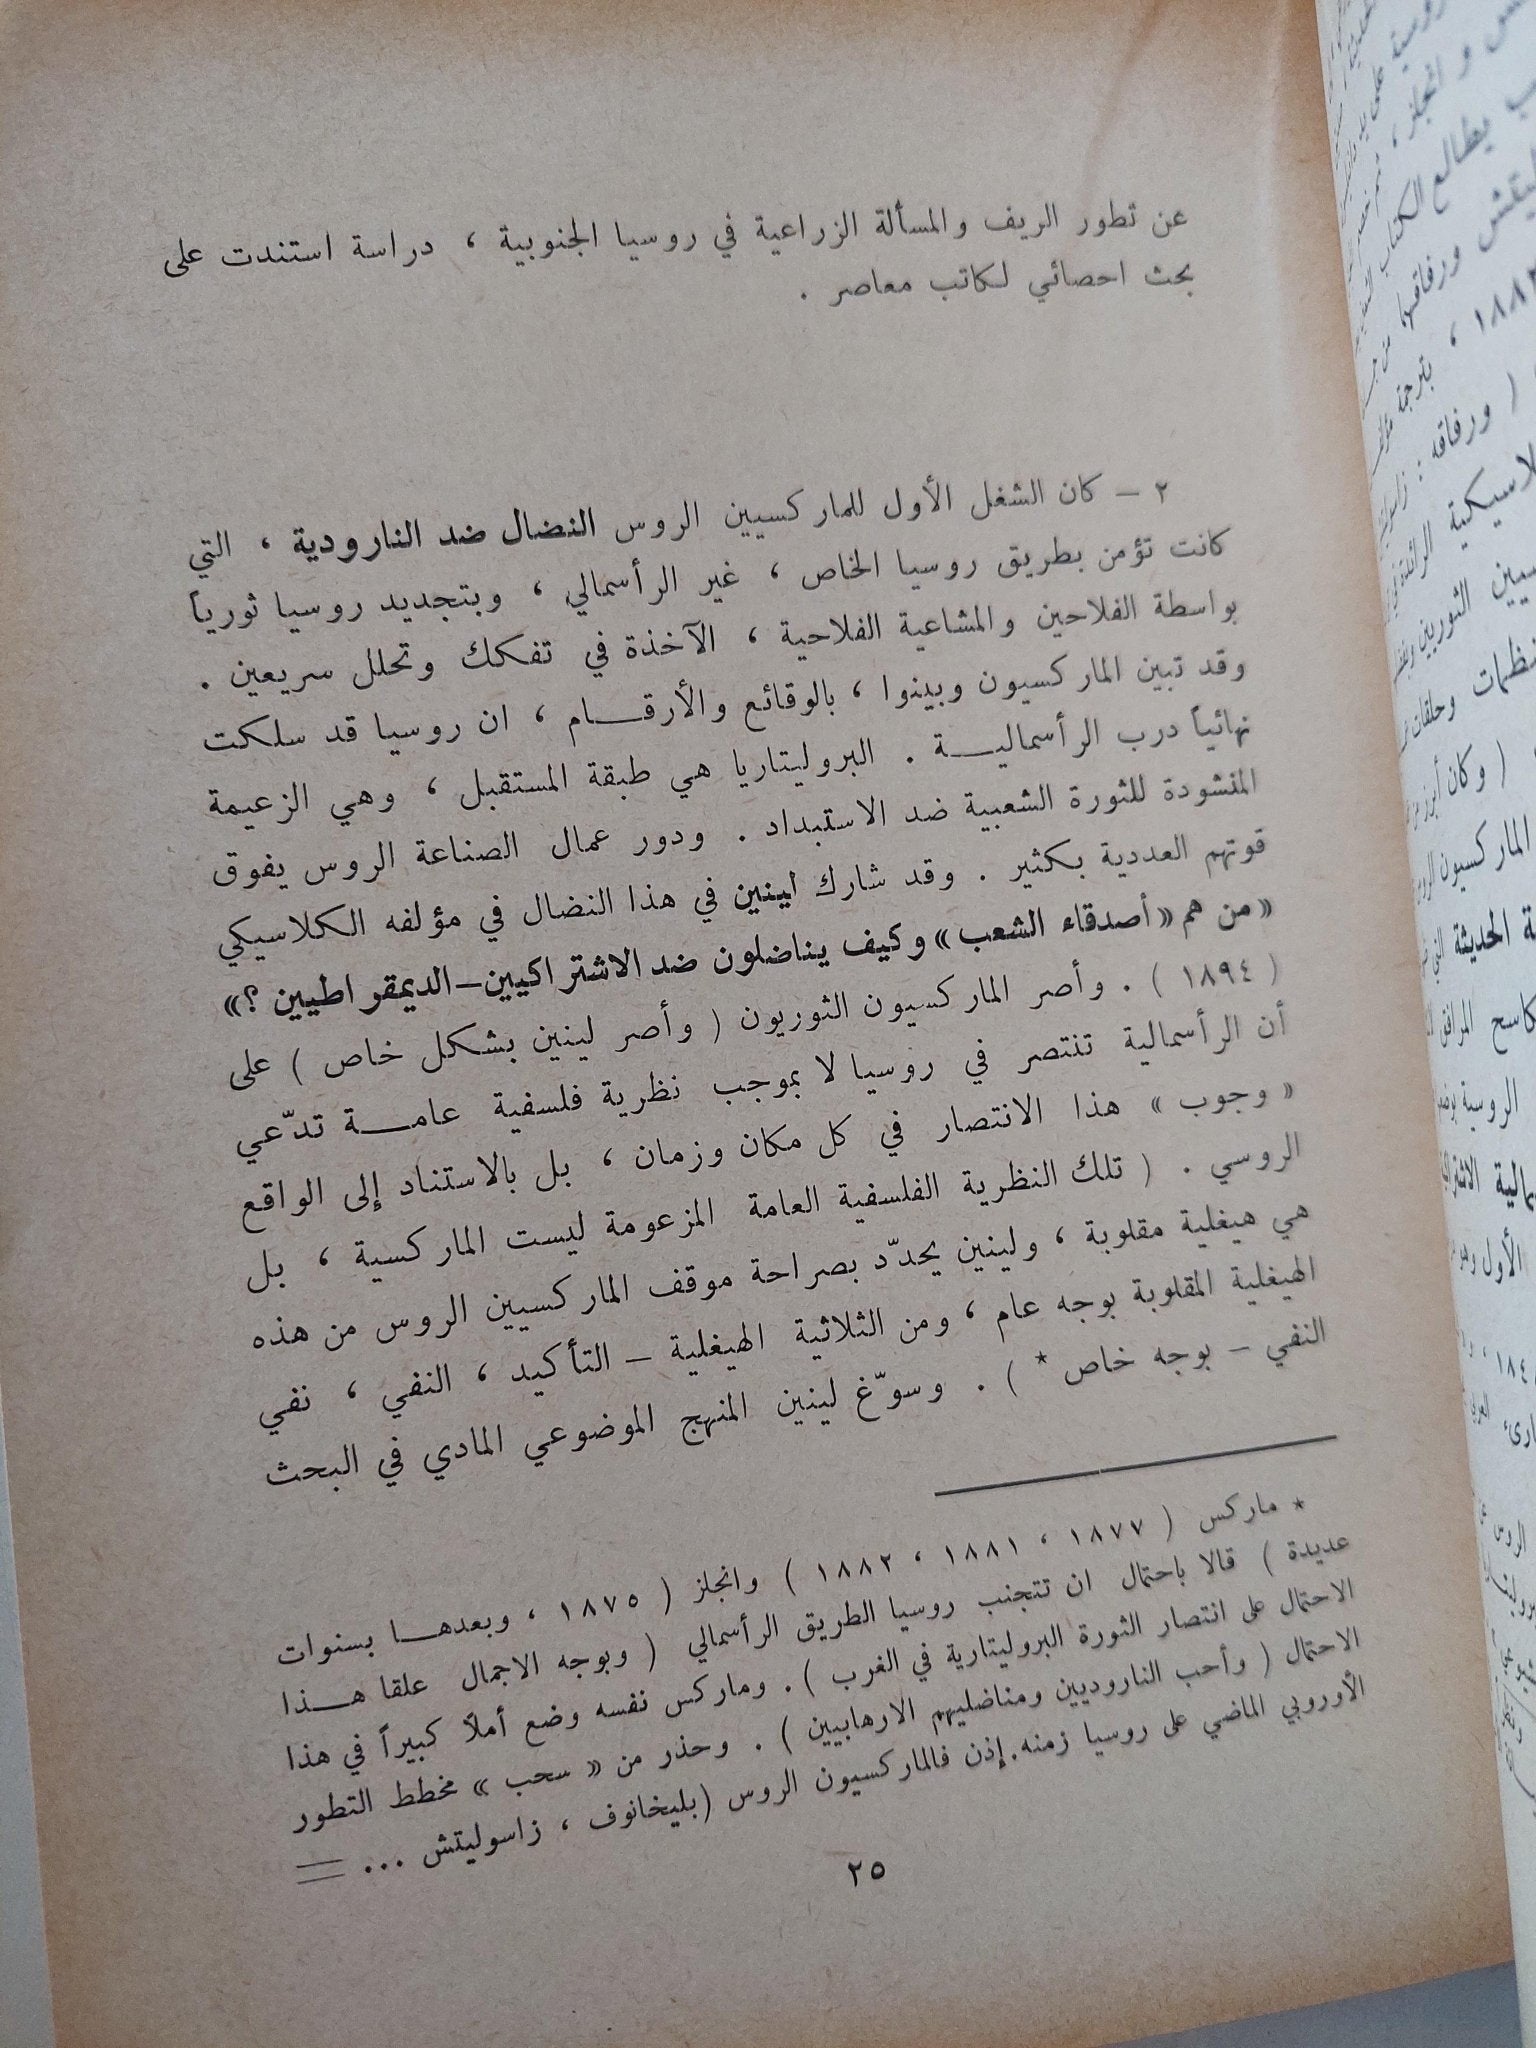 عن تطور الريف والمسألة الزراعية في روسيا الجنوبية ، دراسة استندت على
بحث احصائي لكاتب معاصر .
٢ – كان الشغل الأول للماركسيين الروس النضال ضد النارودية ، التي
كانت تؤمن بطريق روسيا الخاص ، غير الرأسمالي ، وبتجديد روسيا ثورياً
بواسطة الفلاحين والمشاعية الفلاحية ، الآخذة في تفكك وتحلل سريعين .
وقد تبين الماركسيون وبينوا ، بالوقائع والأرقـــام ، ان روسيا قد سلكت
نهائياً درب الرأسماليـــة . البروليتاريا هي طبقة المستقبل ، وهي الزعيمة
المنشودة للثورة الشعبية ضد الاستبداد . ودور عمال الصناعة الروس يفوق
قوتهم العددية بكثير . وقد شارك لينين في هذا النضال في مؤلفه الكلاسيكي
« من هم « أصدقاء الشعب » وكيف يناضلون ضد الاشتراكيين–الديمقراطيين ؟ »
( ١٨٩٤ ) . وأصر الماركسيون الثوريون ( وأصر لينين بشكل خاص ) على
أن الرأسمالية تنتصر في روسيا لا بموجب نظرية فلسفية عامـــة تدّعي
« وجوب » هذا الانتصار في كل مكان وزمان ، بل بالاستناد إلى الواقع
الروسي . ( تلك النظرية الفلسفية العامة المزعومة ليست الماركسية ، بل
هي هيغلية مقلوبة ، ولينين يحدّد بصراحة موقف الماركسيين الروس من هذه
الهيغلية المقلوبة بوجه عام ، ومن الثلاثية الهيغلية – التأكيد ، النفي ، نفي
النفي – بوجه خاص * ) . وسوّغ لينين المنهج الموضوعي المادي في البحث
* ماركس ( ١٨٧٧ ، ١٨٨١ ، ١٨٨٢ ) وانجلز ( ١٨٧٥ ، وبعدهـــا بسنوات
عديدة ) قالا باحتمال ان تتجنب روسيا الطريق الرأسمالي ( وبوجه الاجمال علقا هـــذا
الاحتمال على انتصار الثورة البروليتارية في الغرب ) . وماركس نفسه وضع أملاً كبيراً في هذا
الاحتمال ( وأحب الناروديين ومناضليهم الارهابيين ) . وحذر من « سحب » مخطط التطور
الأوروبي الماضي على روسيا زمنه. إذن فالماركسيون الروس (بليخانوف ، زاسوليتش ... =
٢٥